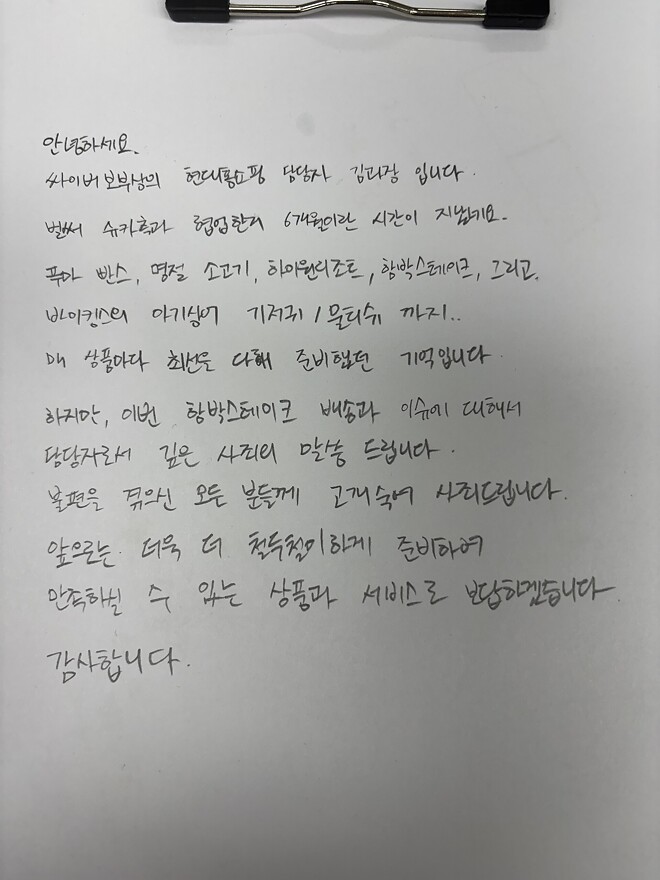 안녕하세요.
싸이버보부상의 현대홈쇼핑 담당자 김과장 입니다.
벌써 슈카측과 협업한지 6개월이란 시간이 지났네요.
푸마 빤스, 명절 소고기, 하이원리조트, 함박스테이크, 그리고,
바이킹스의 아기상어 기저귀 / 물티슈 까지..
매 상품마다 최선을 다해 준비했던 기억입니다.
하지만, 이번 함박스테이크 배송과 이슈에 대해서
담당자로서 깊은 사죄의 말씀 드립니다.
불편을 겪으신 모든 분들께 고개숙여 사죄드립니다.
앞으로는 더욱 더 철두철미하게 준비하여
만족하실 수 있는 상품과 서비스로 보답하겠습니다.
감사합니다.